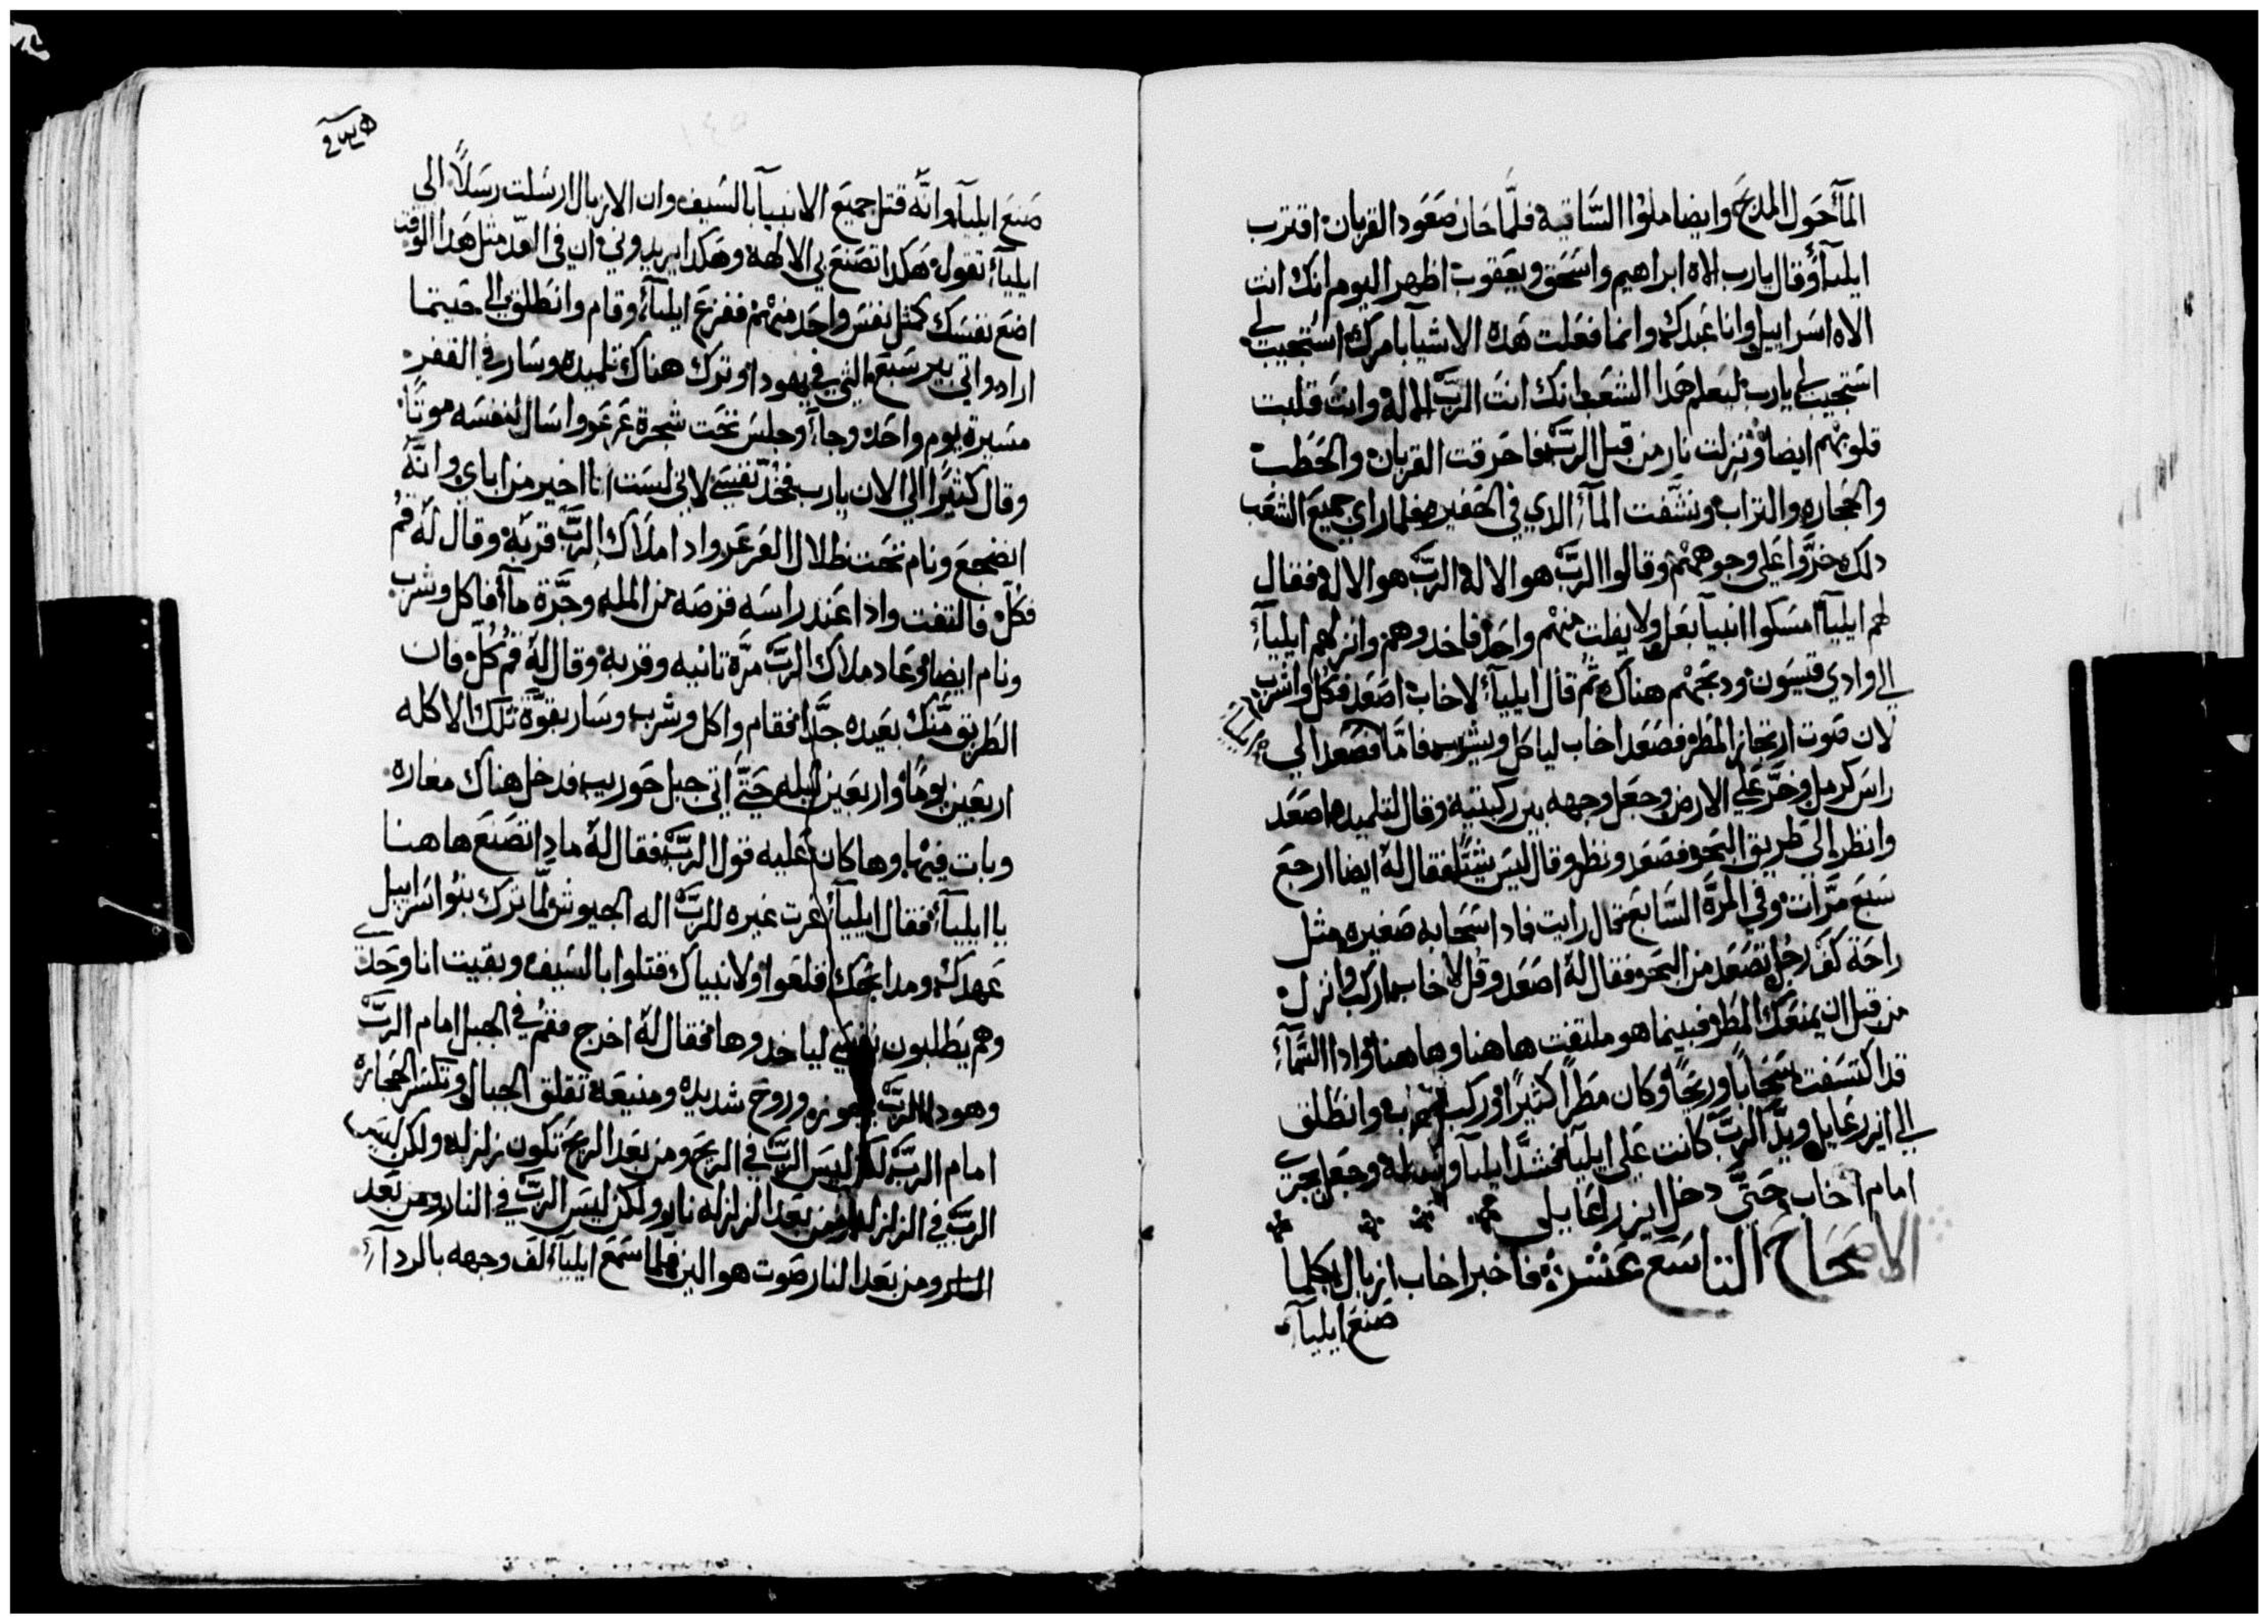 المآ حول المدبح وايضا ملوا الساقيه فلما حان صعود القربان اقترب
ايليآ وقال يارب الاه ابراهيم واسحق ويعقوب اظهر اليوم انك انت
الاه اسراييل وانا عبدك وانما فعلت هده الاشيآ بامرك استجيب لي
استجيب لي يارب ليعلم هدا الشعب انك انت الرب الاله وانت قلبت
قلوبهم ايضا ونزلت نار من قبل الرب فاحرقت القربان والحطب
والحجاره والتراب ونشفت المآء الدي في الحفيره فلما راي جميع الشعب
دلك خروا علي وجوههم وقالوا الرب هو الاله الرب هو الاله فقال
لهم ايليآ امسكوا انبيآ بعل ولا يفلت منهم واحد فاخدوهم وانزلهم ايليآء
الي وادي قيسون ودبحهم هناك ثم قال ايليآء لاخاب اصعد فكل واشرب
لان صوت ارتجاز المطر فصعد اخاب لياكل ويشرب فاما فصعد الي
ايليآ
راس كرمل وخر علي الارض وجعل وجهه بين ركبتيه وقال لتلميده اصعد
وانظر الي طريق البحر فصعد ونظر وقال ليس شيئا فقال له ايضا ارجع
سبع مرات وفي المرة السابع قال رايت فادا سحابه صغيره مثل
راحة كف رجل تصعد من البحر فقال له اصعد وقل لاخاب اركب وانزل
من قبل ان يمنعك المطر فبينما هو ملتفت هاهنا وهاهنا وادا السمآء
قد اكتسفت سحابا وريحا وكان مطرا كثيرا وركب اخاب وانطلق
الي ايزرعايل ويد الرب كانت علي ايليآ فشد ايليآ وسطه وجعل يجري
امام اخاب حتي دخل ايزراعايل
الاصحاح التاسع عشر فاخبر اخاب ازبال بكلما
صنع ايليآء
صنع ايليآ وانه قتل جميع الانبيآ بالسيف وان الازبال ارسلت رسلا الي
ايليآء تقول هكدا تصنع بي الالهه وهكدا يريدوني ان في الغد مثل هدا الوقت
اضع نفسك كمثل نفس واحد منهم ففزع ايليآء وقام وانطلق الي حيتما
اراد واتي بير سبع التي في يهودا وترك هناك تلميده وسار في القفر
مسيرة يوم واحد وجآء وجلس تحت شجرة عرعر واسال لنفسه موتا
وقال كثيرا الي الان يارب فخد نفسي لاني لست انا اخير من اباي وانه
انضجع ونام تحت ظلال العرعر وادا ملاك الرب قربه وقال له قم
فكل فالتفت وادا عند راسه قرصه من المله وجرة مآء فاكل وشرب
ونام ايضا وعاد ملاك الرب مرة تانيه وقربه وقال له قم كل فان
الطريق منك بعيده جدا فقام واكل وشرب وسار بقوة تلك الاكله
اربعين يوما واربعين ليله حتي اتي جبل حوريب فدخل هناك مغاره
وبات فيها وها كان عليه قول الرب فقال له مادا تصنع هاهنا
يا ايليآء فقال ايليآء غرت غيره للرب اله الجيوش لما ترك بنوا اسراييل
عهدك ومدابحك قلعوا ولانبياك قتلوا بالسيف وبقيت انا وحدي
وهم يطلبون نفسي لياخدوها فقال له اخرج فقم في الجبل امام الرب
وهودا الرب يجوز وروح شديده ومنيعه تقلق الجبال وتكسر الحجاره
امام الرب لكن ليس الرب في الريح ومن بعد الريح تكون زلزله ولكن ليس
الرب في الزلزله ومن بعد الزلزله نار ولكن ليس الرب في النار ومن بعد
النار ومن بعد النار صوت هوا لين فلما سمع ايليآء لف وجهه بالردآء